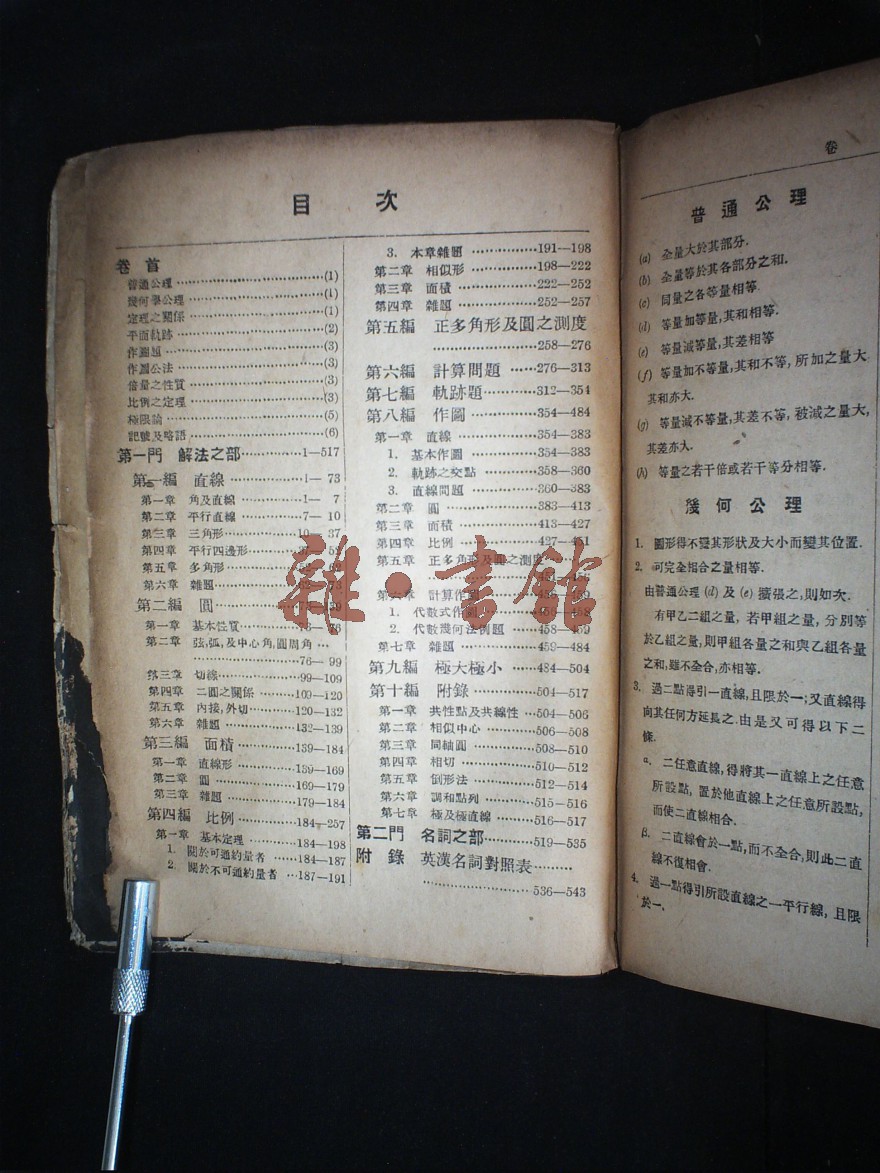 目次
卷首
普通公理……(1)
幾何學公理……(1)
定理之關係……(1)
平面軌跡……(2)
作圖題……(3)
作圖公法……(3)
倍量之性質……(3)
比例之定理……(3)
極限論……(5)
記號及略語……(6)
第一門 解法之部……1—517
第一編 直線……1—73
第一章 角及直線……1—7
第二章 平行直線……7—10
第三章 三角形……10—37
第四章 平行四邊形
第五章 多角形
第六章 雜題
第二編 圓
第一章 基本性質
第二章 弦,弧,及中心角,圓周角……
……76—99
第三章 切線……99—109
第四章 二圓之關係……109—120
第五章 內接,外切……120—132
第六章 雜題……132—139
第三編 面積……139—184
第一章 直線形……139—169
第二章 圓……169—179
第三章 雜題……179—184
第四編 比例……184—257
第一章 基本定理……184—198
1. 關於可通約量者……184—187
2. 關於不可通約量者……187—191
3. 本章雜題……191—198
第二章 相似形……198—222
第三章 面積……222—252
第四章 雜題……252—257
第五編 正多角形及圓之測度
……258—276
第六編 計算問題……276—313
第七編 軌跡題……312—354
第八編 作圖……354—484
第一章 直線……354—383
1. 基本作圖……354—358
2. 軌跡之交點……358—360
3. 直線問題……360—383
第二章 圓……383—413
第三章 面積……413—427
第四章 比例……427—451
第五章 正多角形及圓之測度
第六章 計算作圖
1. 代數式作圖
2. 代數幾何法例題……458—459
第七章 雜題……459—484
第九編 極大極小……484—504
第十編 附錄……504—517
第一章 共性點及共線性……504—506
第二章 相似中心……506—508
第三章 同軸圓……508—510
第四章 相切……510—512
第五章 倒形法……512—514
第六章 調和點列……515—516
第七章 極及極直線……516—517
第二門 名詞之部……519—535
附錄 英漢名詞對照表……
……536—543
雜·書館
卷
普通公理
(a) 全量大於其部分.
(b) 全量等於其各部分之和.
(c) 同量之各等量相等.
(d) 等量加等量,其和相等.
(e) 等量減等量,其差相等
(f) 等量加不等量,其和不等,所加之量大
其和亦大.
(g) 等量減不等量,其差不等,被減之量大,
其差亦大.
(h) 等量之若干倍或若干等分相等.
幾何公理
1. 圖形得不變其形狀及大小而變其位置.
2. 可完全相合之量相等.
由普通公理(d)及(e)擴張之,則如次.
有甲乙二組之量,若甲組之量,分別等
於乙組之量,則甲組各量之和與乙組各量
之和,雖不全合,亦相等.
3. 過二點得引一直線,且限於一;又直線得
向其任何方延長之.由是又可得以下二
條.
α. 二任意直線,得將其一直線上之任意
所設點,置於他直線上之任意所設點,
而使二直線相合.
β. 二直線會於一點,而不全合,則此二直
線不復相會.
4. 過一點得引所設直線之一平行線,且限
於一.